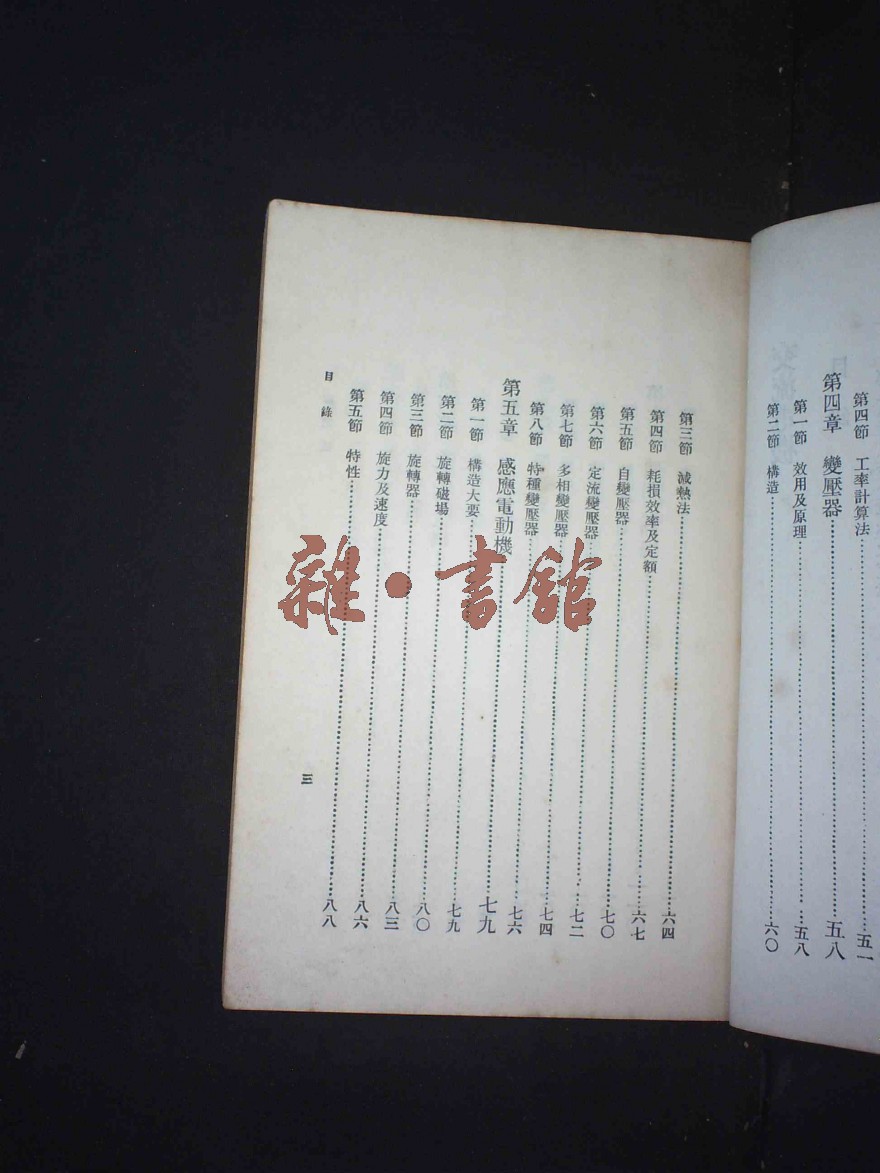 第四節 工率計算法 五一
第四章 變壓器 五八
第一節 效用及原理 五八
第二節 構造 六〇
第三節 減熱法 六四
第四節 耗損效率及定額 六七
第五節 自變壓器 七〇
第六節 定流變壓器 七二
第七節 多相變壓器 七四
第八節 特種變壓器 七六
第五章 感應電動機 七九
第一節 構造大要 七九
第二節 旋轉磁場 八〇
第三節 旋轉器 八三
第四節 旋力及速度 八六
第五節 特性 八八
目錄
三
雜·書館